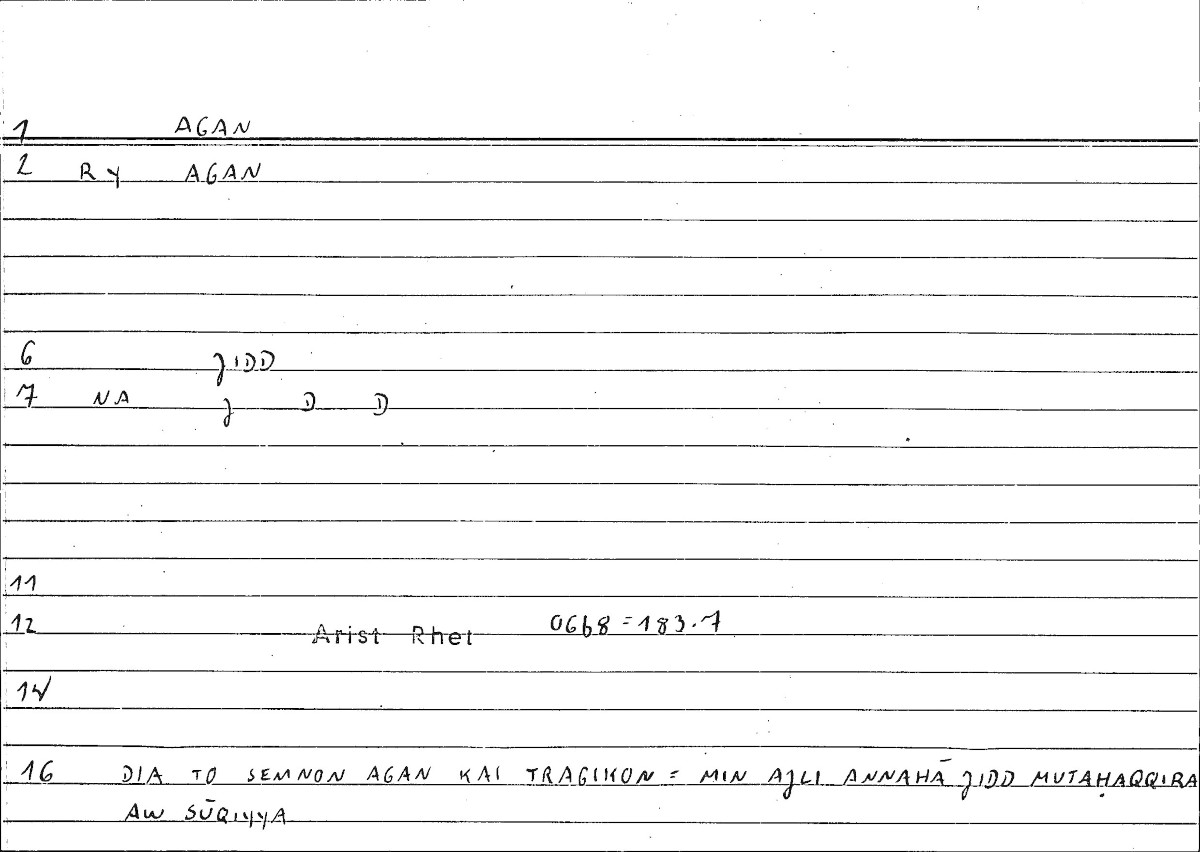 1 AGAN
2 RY AGAN
6 JIDD
7 NA J D D
11
12 Arist Rhet 06b8=183.7
14
16 DIA TO SEMNON AGAN KAI TRAGIKON = MIN AJLI ANNAHĀ JIDD MUTAḤAQQIRA
AW SŪQIYYA